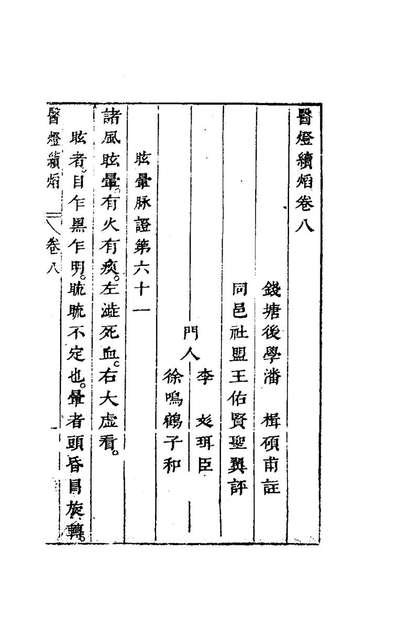 醫燈續焰卷八
錢塘後學潘楫碩甫註
同邑社盟王佑賢聖翼評
門人
李 珥臣
徐鳴鶴子和
眩暈脉證第六十一
諸風眩暈。有火有痰。左澁死血。右大虛看。
眩者。目乍黑乍明。䀮䀮不定也。暈者。頭昏目旋轉。
醫燈續焰 卷八